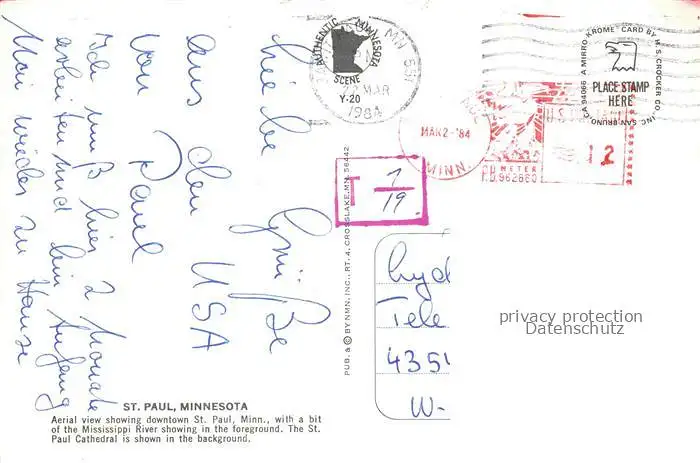 Liebe Grüße
aus den USA
von Paul
Ich muß hier 2 Monate
arbeiten und bin Anfang
Mai wieder zu Hause
AUTHENTIC MINNESOTA
SCENE
Y-20
MN 551
22 MAR
1984
A MIRRO-KROME® CARD BY H.S. CROCKER CO., INC. SAN BRUNO, CA 94066
PLACE STAMP
HERE
MAR 2-'84
MINN.
U.S. POSTAGE
12
P.B. METER
962660
T 7/19
PUB. & © BY NMN, INC., RT. 4, CROSSLAKE, MN. 56442
Tele
4354
W-
privacy protection
Datenschutz
ST. PAUL, MINNESOTA
Aerial view showing downtown St. Paul, Minn., with a bit
of the Mississippi River showing in the foreground. The St.
Paul Cathedral is shown in the background.